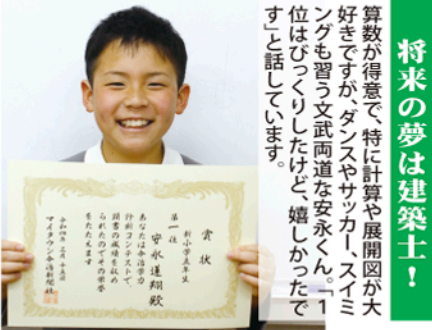 将来の夢は建築士！
算数が得意で、特に計算や展開図が大
好きですが、ダンスやサッカー、スイミ
ングも習う文武両道な安永くん。「1
位はびっくりしたけど、嬉しかったで
す」と話しています。
賞状
新小学五年生
第一位
安永蓮翔殿
あなたは今治学力
診断コンテストで、
頭書の成績を収め
られたのでその栄誉
をたたえます
令和四年三月十五日
マイタウン今治新聞社